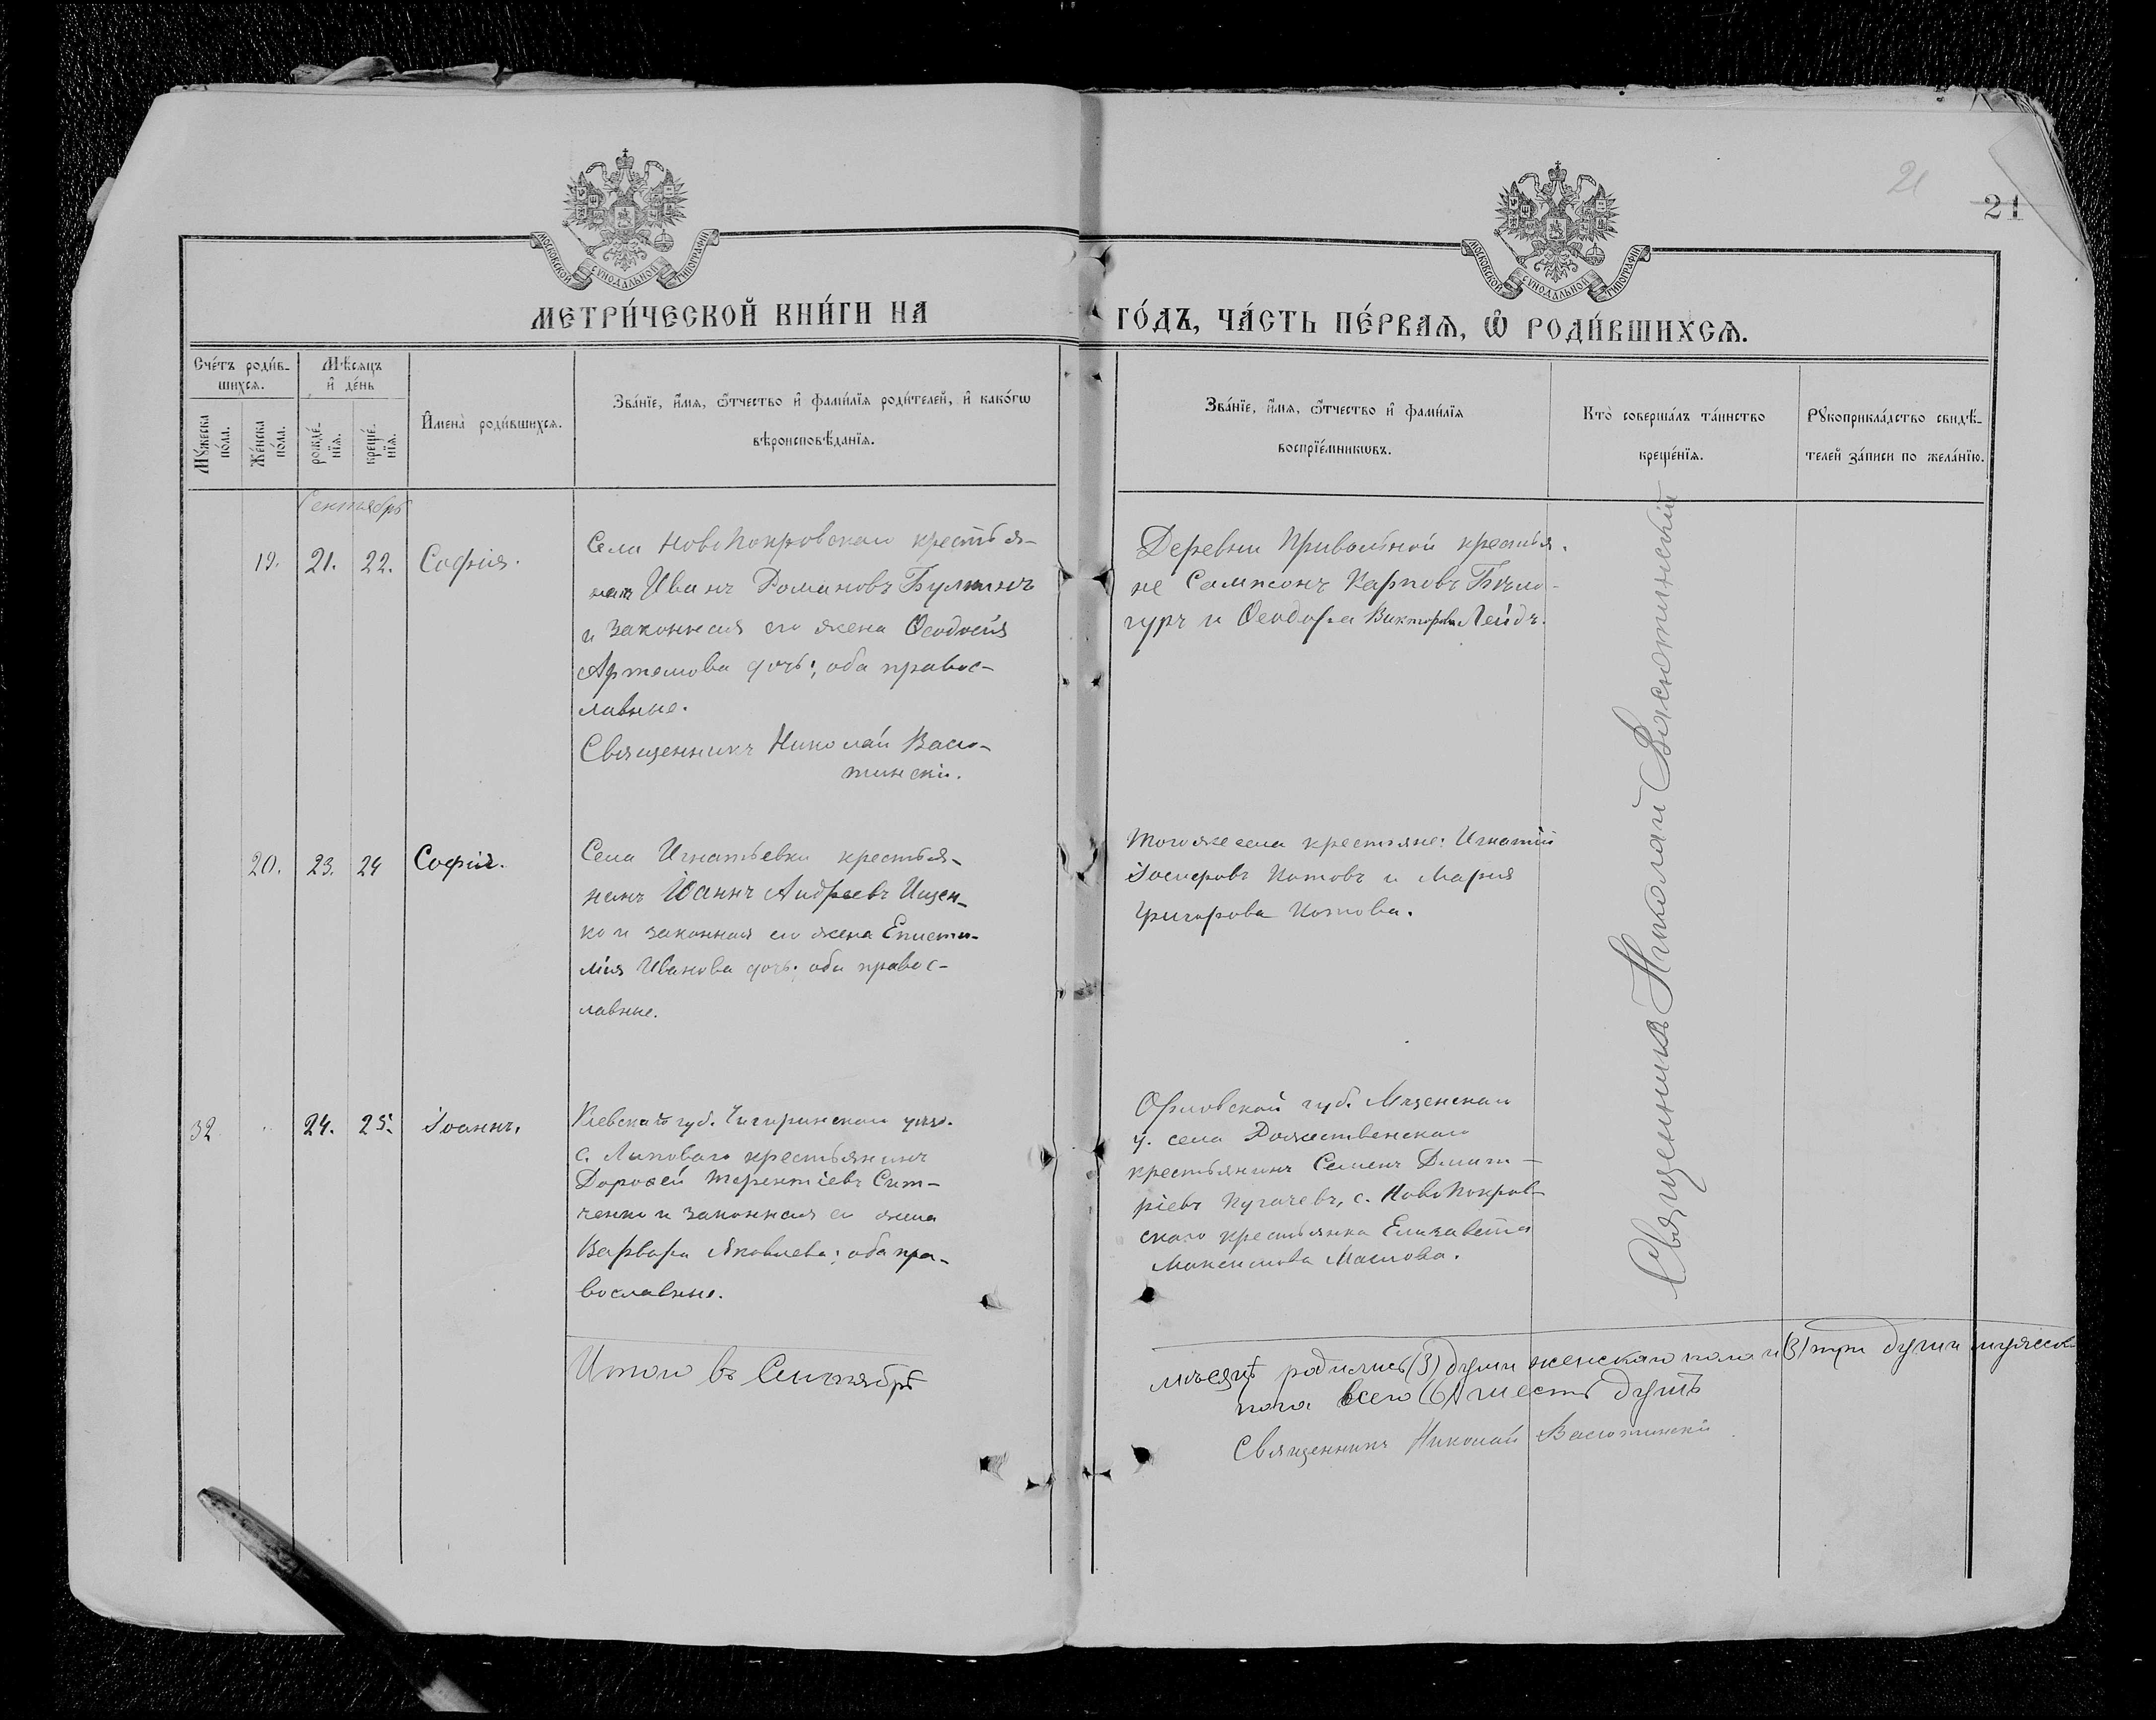 21
21
МОСКОВСКОЙ СУНОДАЛЬНОЙ ТИПОГРАФІИ
МОСКОВСКОЙ СУНОДАЛЬНОЙ ТИПОГРАФІИ
МЕТРИ́ЧЕСКОЙ КНИ́ГИ НА
ГО́ДЪ, ЧА́СТЬ ПЕ́РВАѦ, Ѿ РОДИ́ВШИХСѦ.
Сче́тъ роди́в-
шихсѧ.
Мѣ́сѧцъ
и҆ де́нь
Мꙋ́жеска
по́ла.
Же́нска
по́ла.
рожде́-
нїѧ.
креще́-
нїѧ.
И҆мена̀ роди́вшихсѧ.
Зва́нїе, и҆́мѧ, ѻ҆́тчество и҆ фами́лїѧ роди́телей, и҆ како́гѡ
вѣроисповѣ́данїѧ.
Зва́нїе, и҆́мѧ, ѻ҆́тчество и҆ фами́лїѧ
воспрїе́мникѡвъ.
Кто̀ соверша́лъ та́инство
креще́нїѧ.
Рꙋкоприкла́дство свидѣ́-
телей за́писи по жела́нїю.
Сентябрь
19. 21. 22. Софія.
Села Новопокровскаго крестья-
нинъ Иванъ Романовъ
и законная его жена Ѳеодосія
Артемова дочь; оба правос-
лавные.
Священникъ Николай Васю-
тинскій.
Деревни Привольной крестья-
не Сампсонъ Карповъ Бѣло-
гуръ и Ѳеодора Викторова
20. 23. 24 Софія.
Села Игнатьевки крестья-
нинъ Іоаннъ Андреевъ Ищен-
ко и законная его жена Еписти-
мія Иванова дочь; оба правос-
лавные.
Того же села крестьяне: Игнатій
и Марія
Григорова
32 24. 25. Іоаннъ.
Кіевской губ. Чигиринскаго уѣзд.
с. Липоваго крестьянинъ
Дороѳей Терентіевъ Сит-
ченко и законная его жена
Варвара Яковлева; оба пра-
вославные.
Орловской губ. Мценскаго
у. села Рождественскаго
крестьянинъ Семенъ Дмит-
ріевъ Пугачевъ, с. Новопокров-
скаго крестьянка Елизавета
Максимова Маслова.
Священникъ Николай Васютинскій
Итого въ Сентябрѣ
мѣсяцѣ родились (3) души женскаго пола и (3) три души мужеск.
пола всего (6) шесть душъ
Священникъ Николай Васютинскій